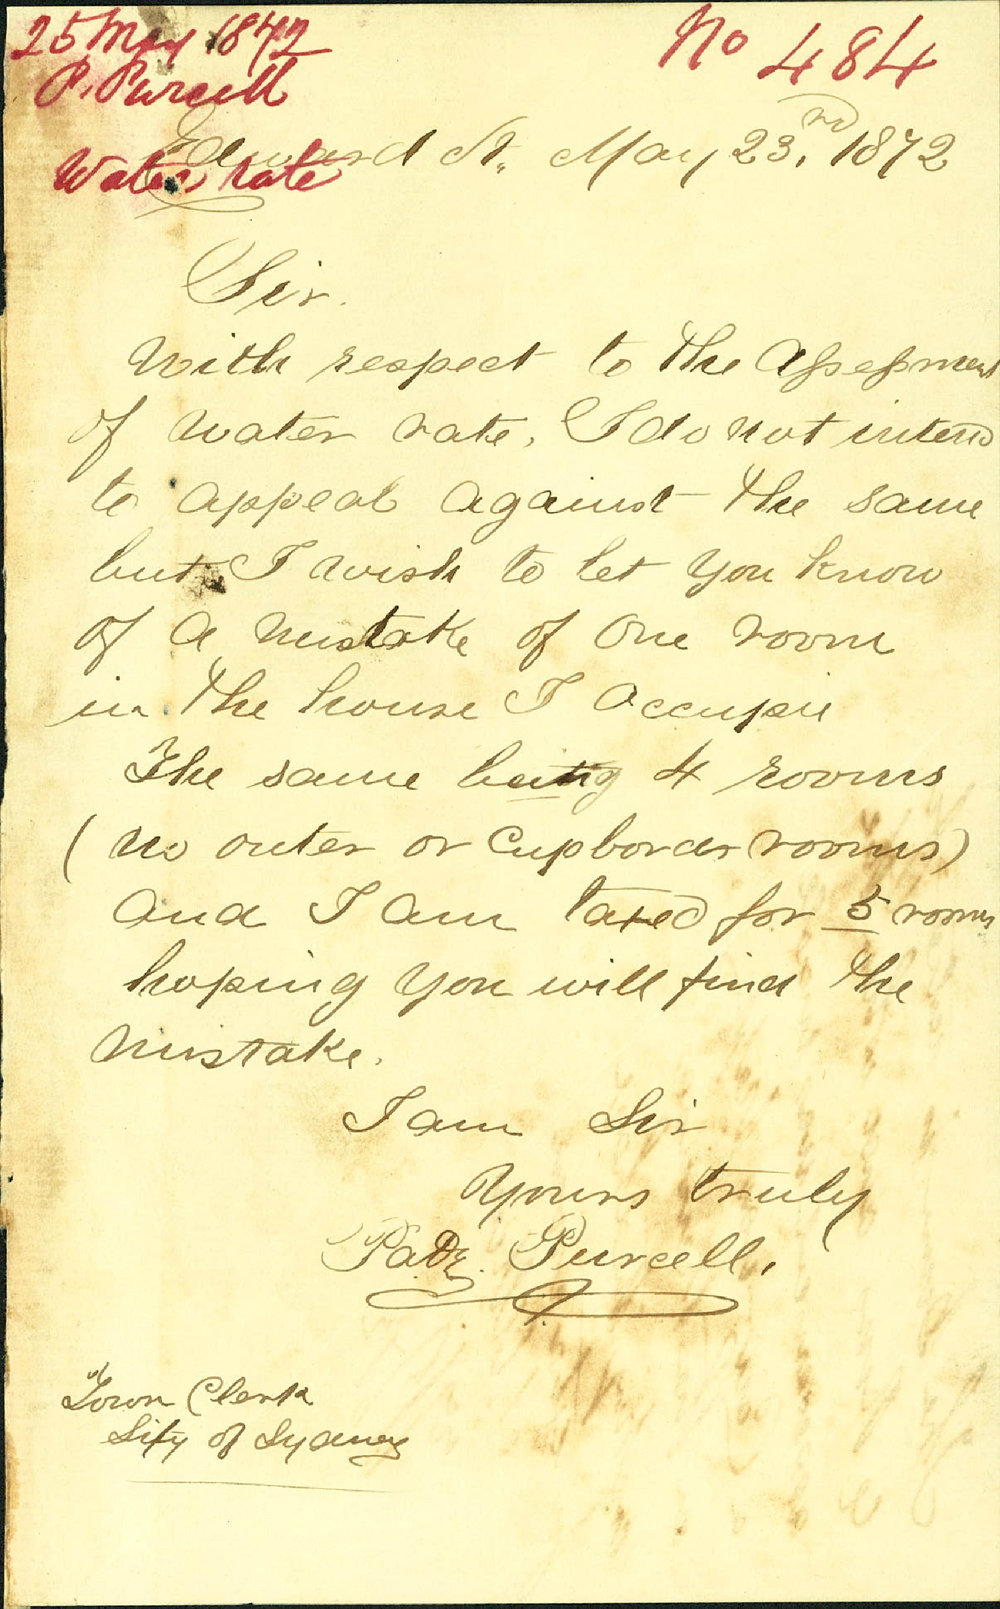 25 May 1872
No 484
P. Purcell
Edward St. May 23.rd 1872
Water rate
Sir.
With respect to the Assessment
of water rate, I do not intend
to appeal against the same
but I wish to let you know
of a mistake of One room
in the house I Occupie
The same being 4 rooms
(no outer or Cupbordr rooms)
and I am taxed for 5 rooms
hoping you will find the
mistake.
I am Sir
Yours truly
Patk. Purcell.
Town Clerk
Sity of Sydney